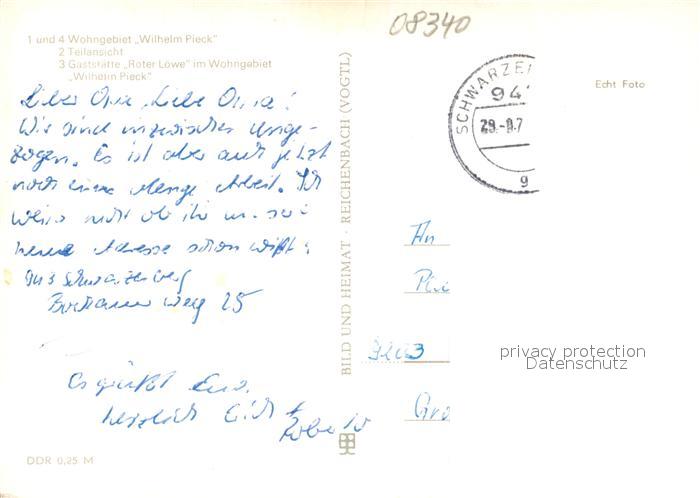 08340
1 und 4 Wohngebiet „Wilhelm Pieck"
2 Teilansicht
3 Gaststätte „Roter Löwe" im Wohngebiet
„Wilhelm Pieck"
Echt Foto
SCHWARZE
94
29.-9.7
9
Lieber Opa, Liebe Oma!
Wir sind inzwischen umge-
zogen. Es ist aber auch jetzt
noch eine Menge Arbeit. Ich
weiss nicht ob ihr
neue Adresse schon wißt:
Schwarzenberg
weg 25
Es grüßt Euch
herzlich
BILD UND HEIMAT · REICHENBACH (VOGTL)
An
privacy protection
Datenschutz
Gro
DDR 0,25 M